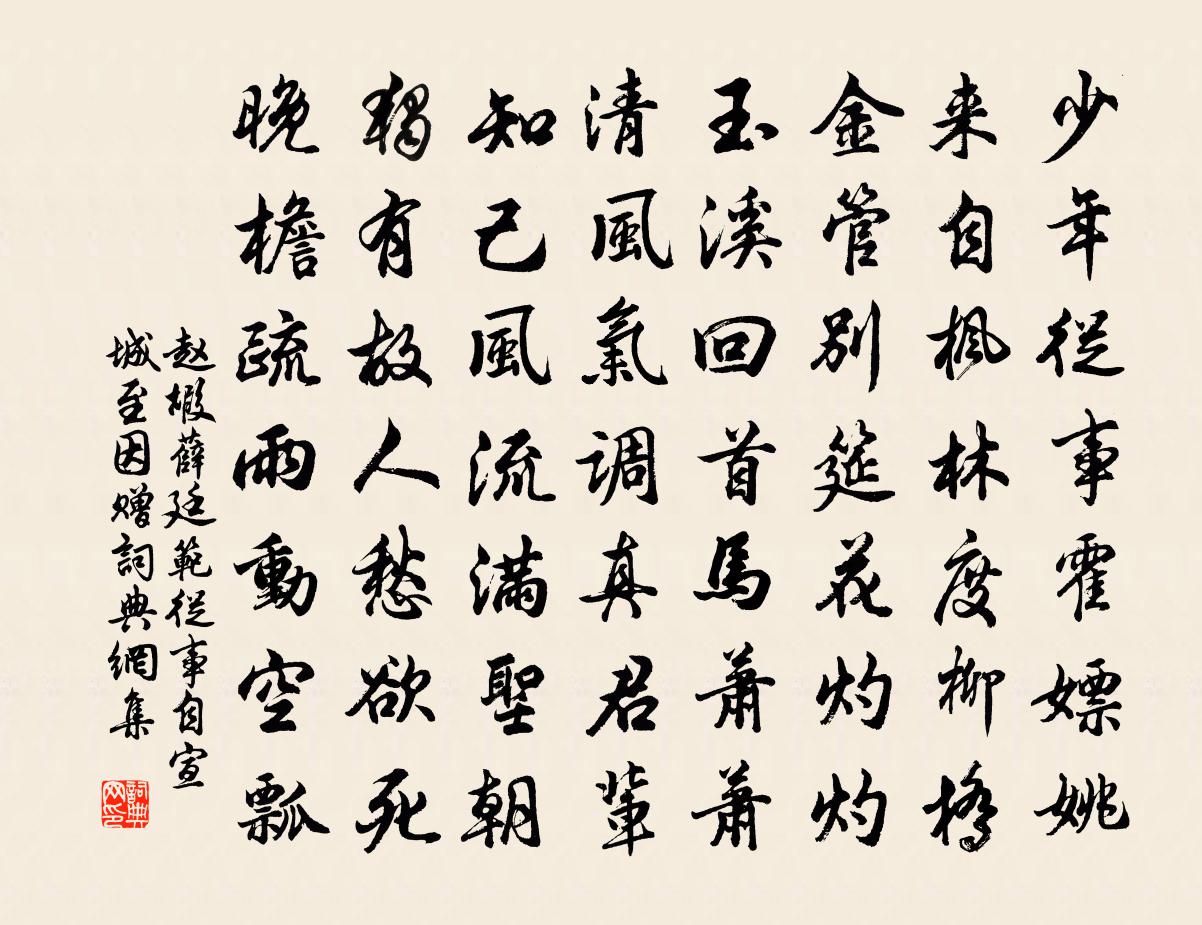 少年從事霍嫖姚
来自楓林度柳橋
金管別筵花灼灼
玉溪回首馬蕭蕭
清風氣調真君輩
知己風流滿聖朝
獨有故人愁欲死
晚檐疏雨動空瓢
赵嘏薛廷範從事自宣
城至因赠詞典網集
詞典网印